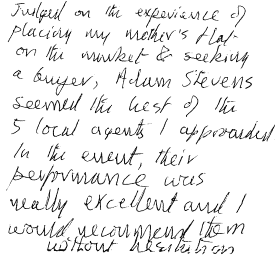 Judged on the experience of
placing my mother's flat
on the market & seeking
a buyer, Adam Stevens
seemed the best of the
5 local agents I approached
In the event, their
performance was
really excellent and I
would recommend them
without hesitation